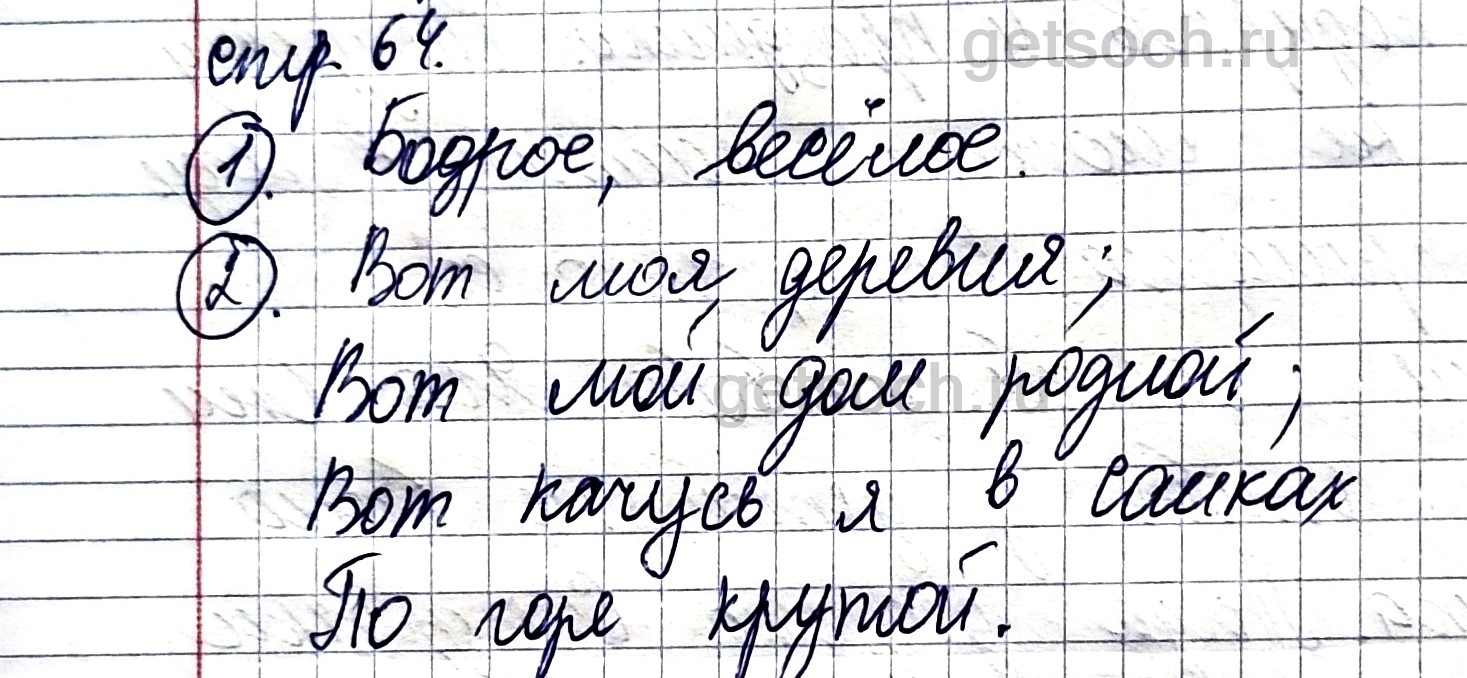 getsoch.ru
стр 64.
1. Бодрое, весёлое.
2. Вот моя деревня;
Вот мой дом родной;
getsoch.ru
Вот качусь я в санках
По горе крутой.